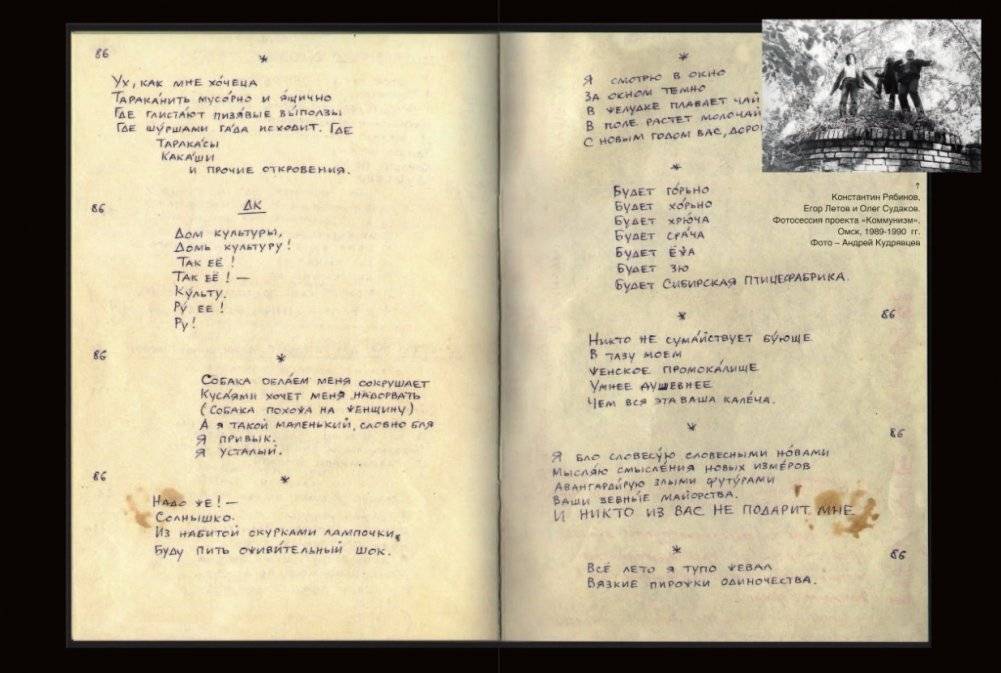 86
*
Ух, как мне хо́чеца
Тарака́нить мусо́рно и я́щично
Где глистают пизя́вые вы́ползы
Где шу́ршами га́да исходит. Где
Тарака́сы
Какаши
и прочие откровения.
86
ДК
Дом культуры,
Домь культуру!
Так её!
Так её! —
Ку́льту.
Ру́ ее!
Ру!
86
*
Собака обла́ем меня сокрушает
Куса́ями хочет меня надорвать
(Собака похожа на женщину)
А я такой маленький, словно бля
Я привык.
Я усталый.
86
*
Надо же! —
Солнышко.
Из набитой окурками лампочки,
Буду пить оживи́тельный шок.
*
Я смотрю в окно
За окном темно
В желудке плавает чай
В поле растет молочай
С новым годом вас,
*
Будет го́рьно
Будет хо́рьно
Будет хрю́ча
Будет сра́ча
Будет ёжа
Будет зю
Будет Сибирская птицефабрика.
*
86
Никто не сума́йствует бу́юще
В тазу моем
Женское промока́лище
Умнее душевнее
Чем вся эта ваша кале́ча.
*
86
Я бло словесу́ю словесными но́вами
Мысля́ю смысле́ния новых изме́ров
Авангарди́рую злыми футу́рами
Ваши зевны́е майо́рства.
И никто из вас не подарит мне
*
86
Всё лето я тупо жевал
Вязкие пирожки одиночества.
↑
Константин Рябинов,
Егор Летов и Олег Судаков.
Фотосессия проекта «Коммунизм».
Омск, 1989-1990 гг.
Фото – Андрей Кудрявцев